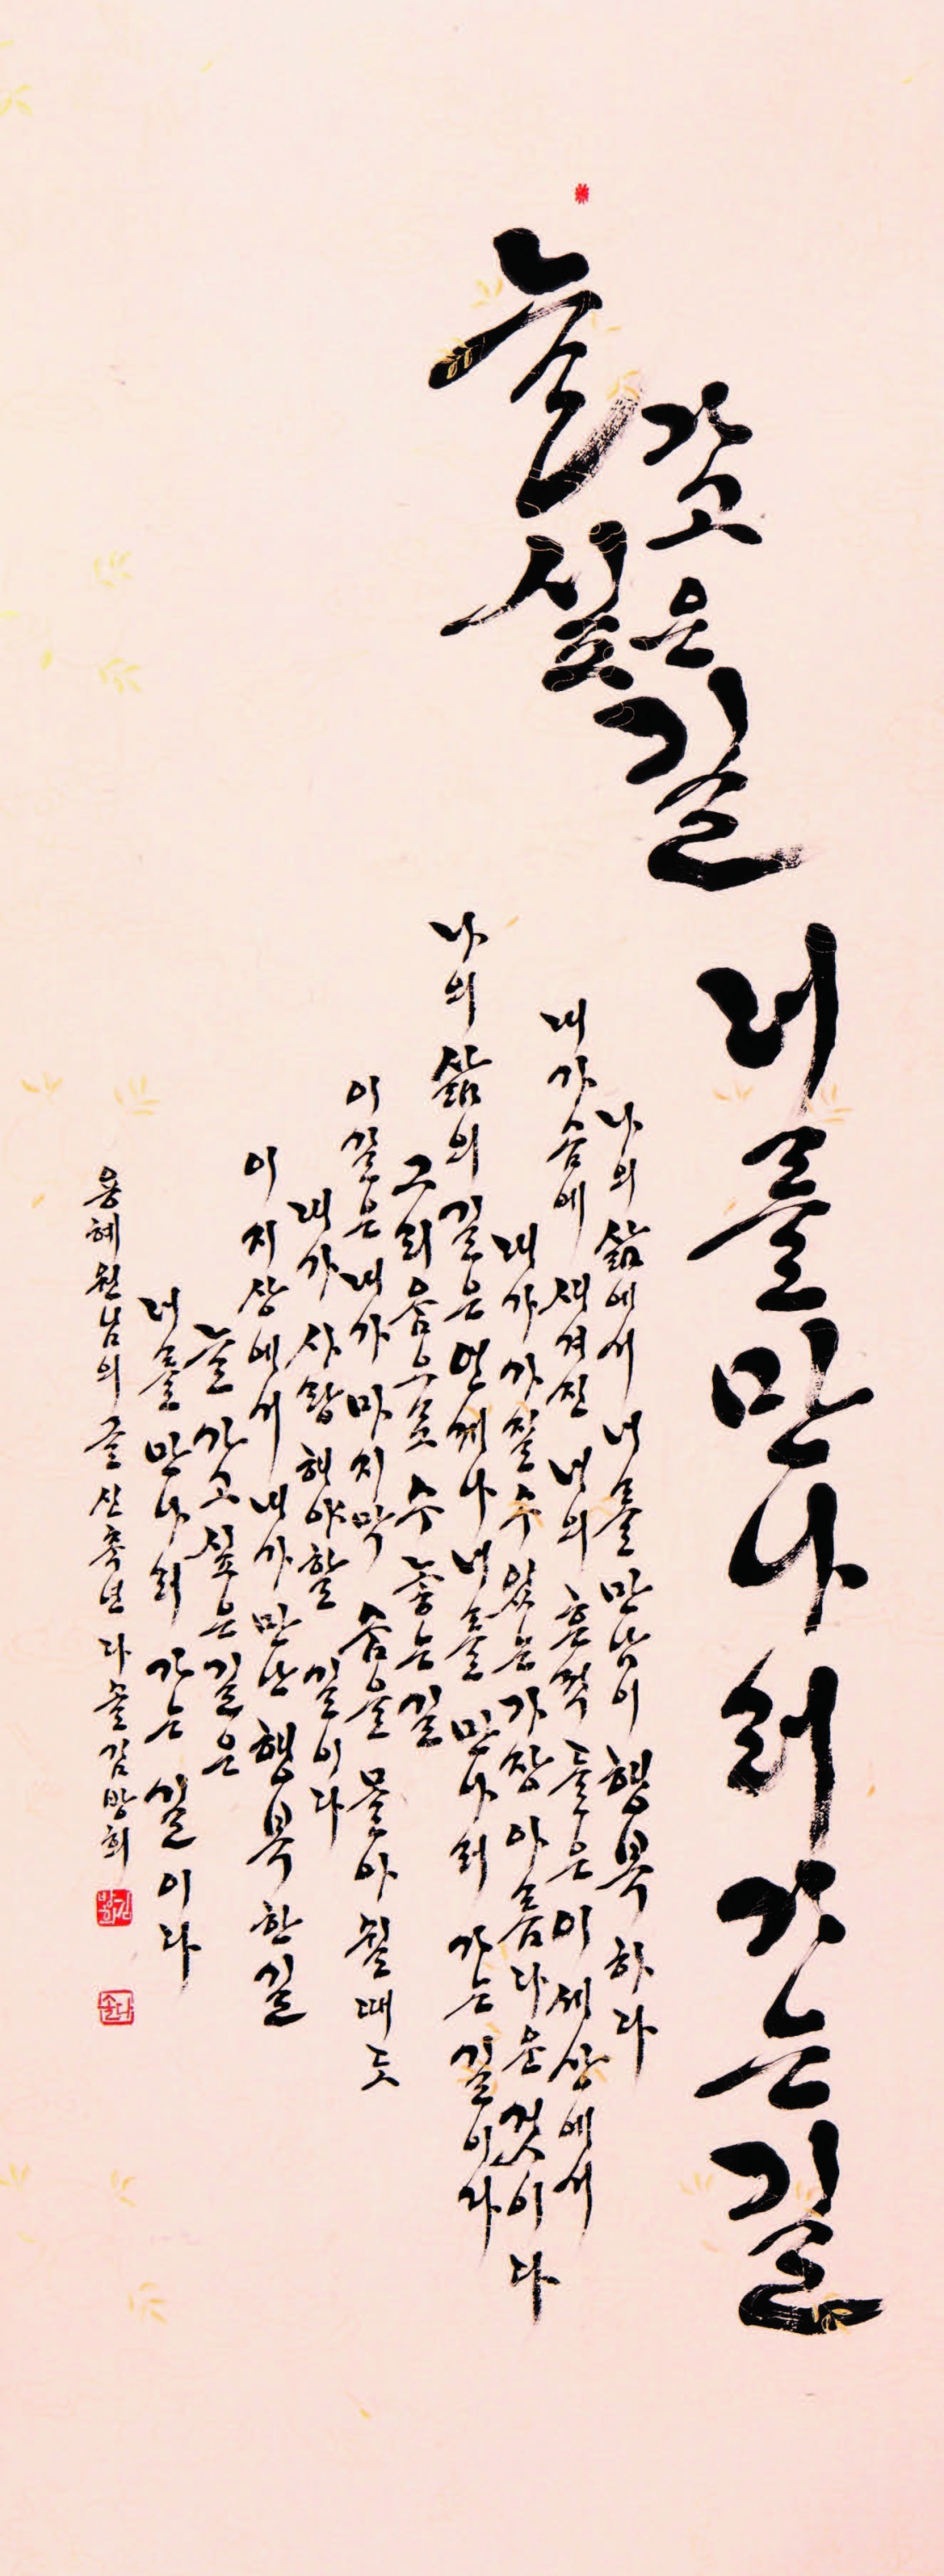 늘 가고 싶은 길
너를 만나러 가는 길
나의 삶에서 너를 만남이 행복하다
내 가슴에 새겨진 너의 흔적들은 이 세상에서
내가 가질 수 있는 가장 아름다운 것이다
나의 삶의 길은 언제나 너를 만나러 가는 길이다
그리움으로 수 놓는 길
이 길은 내가 마지막 숨을 몰아 쉴 때도
내가 사랑해야 할 길이다
이 지상에서 내가 만난 행복한 길
늘 가고 싶은 길은
너를 만나러 가는 길이다
용혜원님의 글 신축년 다솔 김방희
김방희
다솔